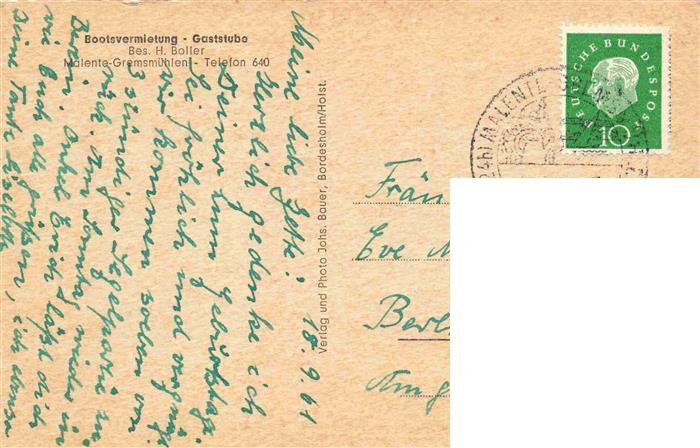 Bootsvermietung - Gaststube
Bes. H. Boller
Malente-Gremsmühlen - Telefon 640
18.9.61
Meine liebe
Herzlich gedenke ich
Deiner zum Geburtstage.
Sei fröhlich und vergnügt
wir kommen soeben von
3 stündiger Segelpartie zu-
rück. Am Sonntag wieder in
Berlin. Onkel Erich läßt dich
wie Euch alle grüßen, ich ebenso
Deine Tante
Verlag und Photo Johs. Bauer, Bordesholm/Holst.
DEUTSCHE BUNDESPOST
10
(24b) MALENTE
Fräu
Eve
Berl
Am